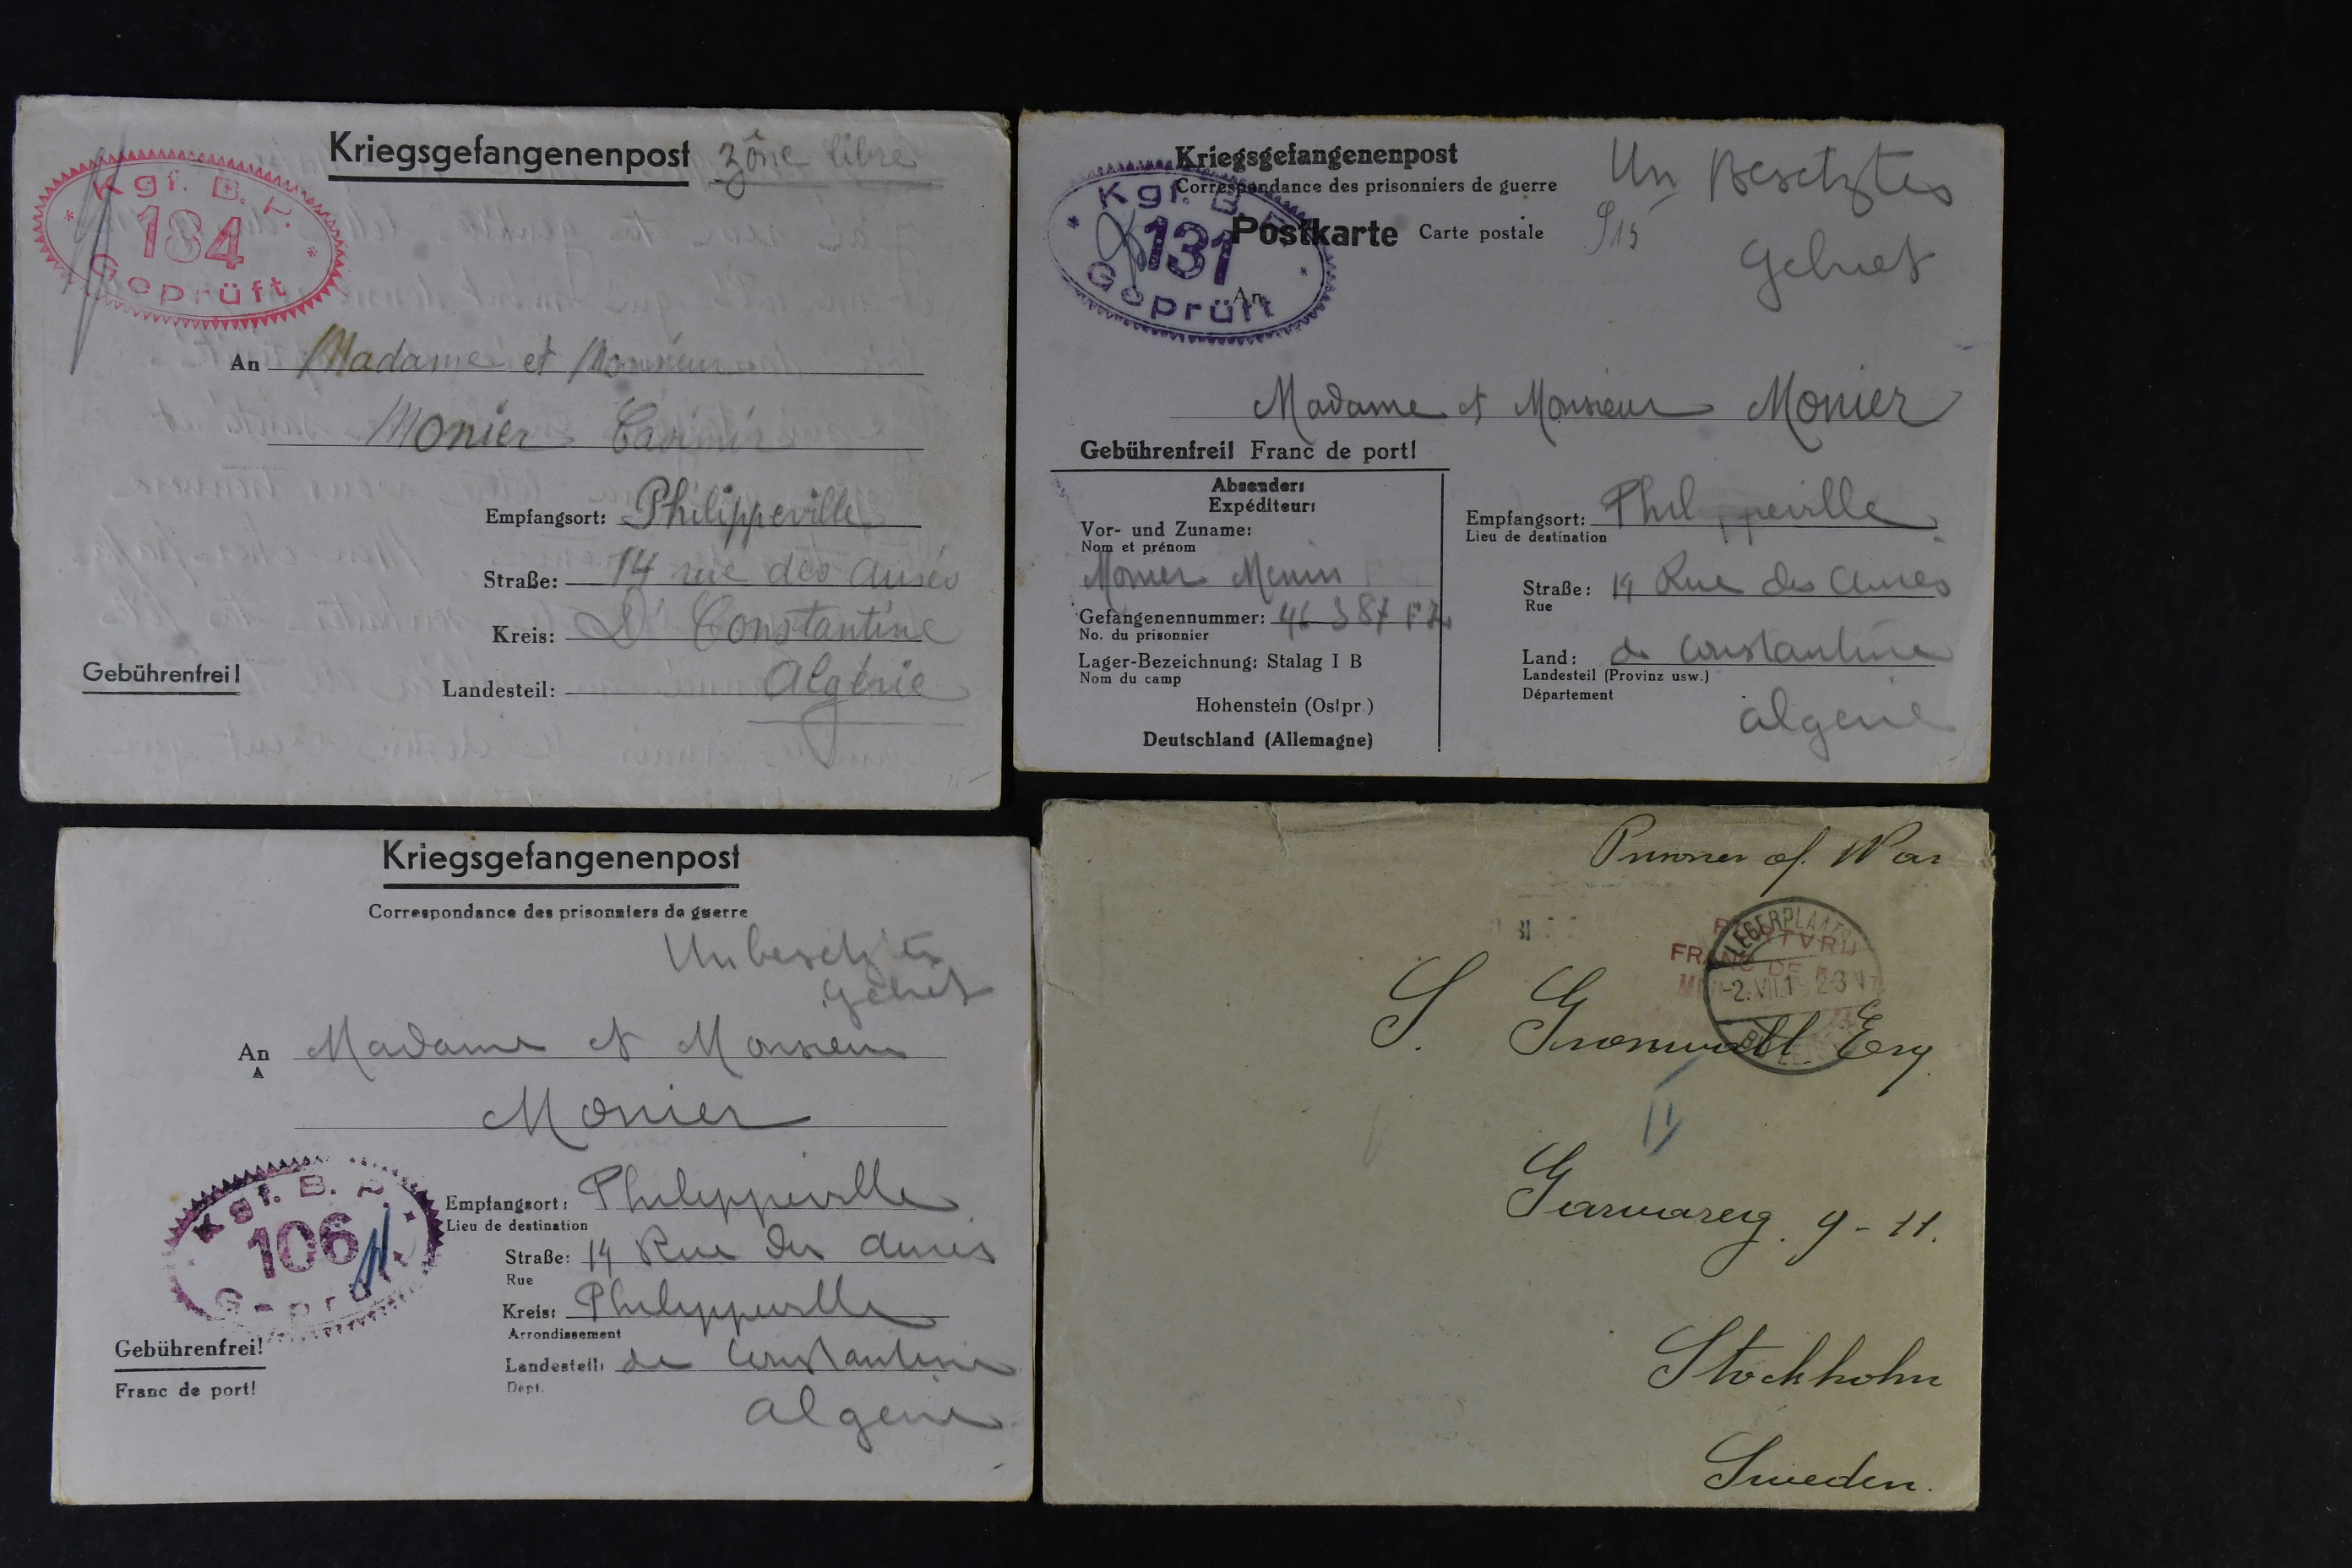 Kriegsgefangenenpost zône libre
Kgf. B. Z.
184
Geprüft
An Madame et Monsieur
Monier Casimir
Empfangsort: Philippeville
Straße: 14 rue des Aurès
Kreis: Dt Constantine
Gebührenfrei!
Landesteil: Algérie
Kriegsgefangenenpost
Correspondance des prisonniers de guerre
Postkarte Carte postale
Un Besetztes
Gebiet
Kgf. B.
131
Geprüft
An
Madame et Monsieur Monier
Gebührenfrei! Franc de port!
Absender:
Expéditeur:
Vor- und Zuname:
Nom et prénom
Monier
Gefangenennummer: 46 387
No. du prisonnier
Lager-Bezeichnung: Stalag I B
Nom du camp
Hohenstein (Ostpr.)
Deutschland (Allemagne)
Empfangsort: Philippeville
Lieu de destination
Straße: 14 Rue des Aures
Rue
Land: de Constantine
Landesteil (Provinz usw.)
Département
Algerie
Kriegsgefangenenpost
Correspondance des prisonniers de guerre
Unbesetztes
Gebiet
An Madame et Monsieur
A
Monier
Kgf. B.
106
Geprüft
Empfangsort: Philippeville
Lieu de destination
Straße: 14 Rue des Aures
Rue
Kreis: Philippeville
Arrondissement
Landesteil: de Constantine
Dept.
Algerie
Gebührenfrei!
Franc de port!
Prisoner of War
PORTVRIJ
FRANC DE PORT
LEGERPLAATS
-2.VII.1 2-3 N
S. Gronwall Esq.
Garvareg. 9-11.
Stockholm
Sweden.